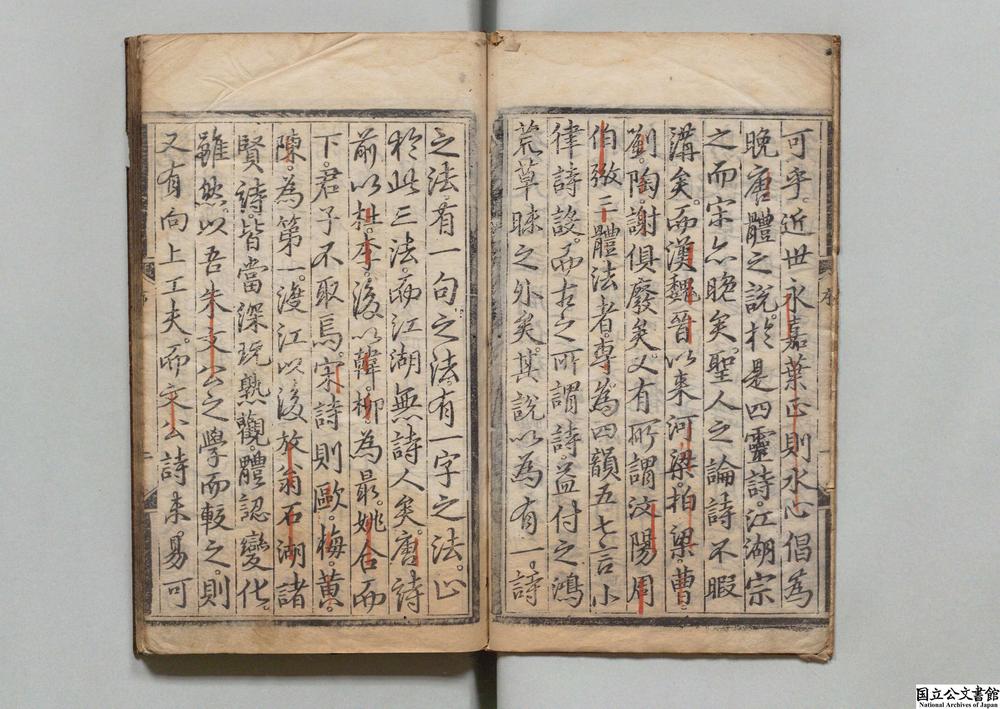 可乎。近世永嘉葉正則水心倡為
晚唐體之說。於是四靈詩。江湖宗
之而宋亦晚矣。聖人之論詩不暇
講矣。而漢魏晉以来河梁。柏梁。曹。
劉。陶。謝俱廢矣。又有所謂汶陽周
伯弜三體法者。專為四韻五七言小
律詩設。而古之所謂詩。益付之鴻
荒草昧之外矣。其說以為有一。詩
之法。有一句。之法。有一字之法。止
於此三法。而江湖無詩人矣。唐詩
前以杜。李。後以韓。柳。為最。姚合而
下。君子不取焉。宋詩則歐。梅。黃。
陳。為第一。渡江以後放翁石湖諸
賢詩。皆當深玩熟觀。體認變化。
雖然。以吾朱文公之學而較之。則
又有向上工夫。而文公詩未易可
序
國立公文書館
National Archives of Japan